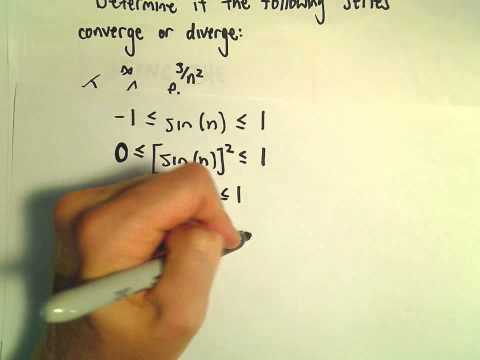 Determine if the following series
converge or diverge:
∞ 3/n²
-1 ≤ sin(n) ≤ 1
0 ≤ [sin(n)]² ≤ 1
≤ 1